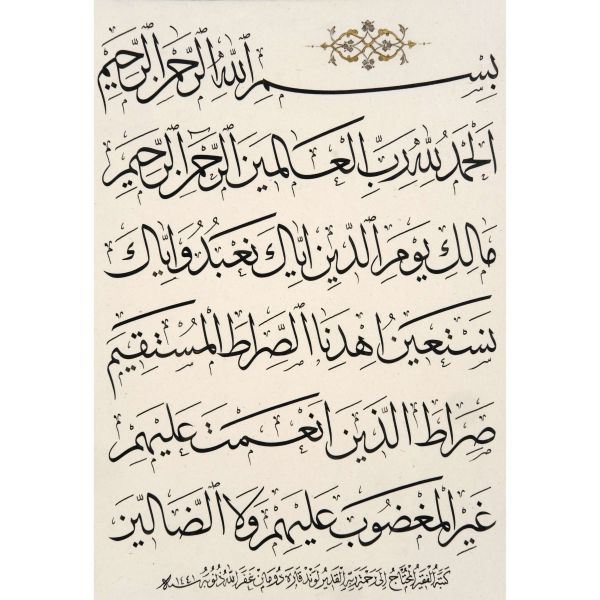 بسم الله الرحمن الرحيم
الحمد لله رب العالمين الرحمن الرحيم
مالك يوم الدين اياك نعبد واياك
نستعين اهدنا الصراط المستقيم
صراط الذين انعمت عليهم
غير المغضوب عليهم ولا الضالين
كتبه الفقير المحتاج الى رحمة ربه القدير لوند قاره دومان غفر الله ذنوبه سنة ١٤٤١